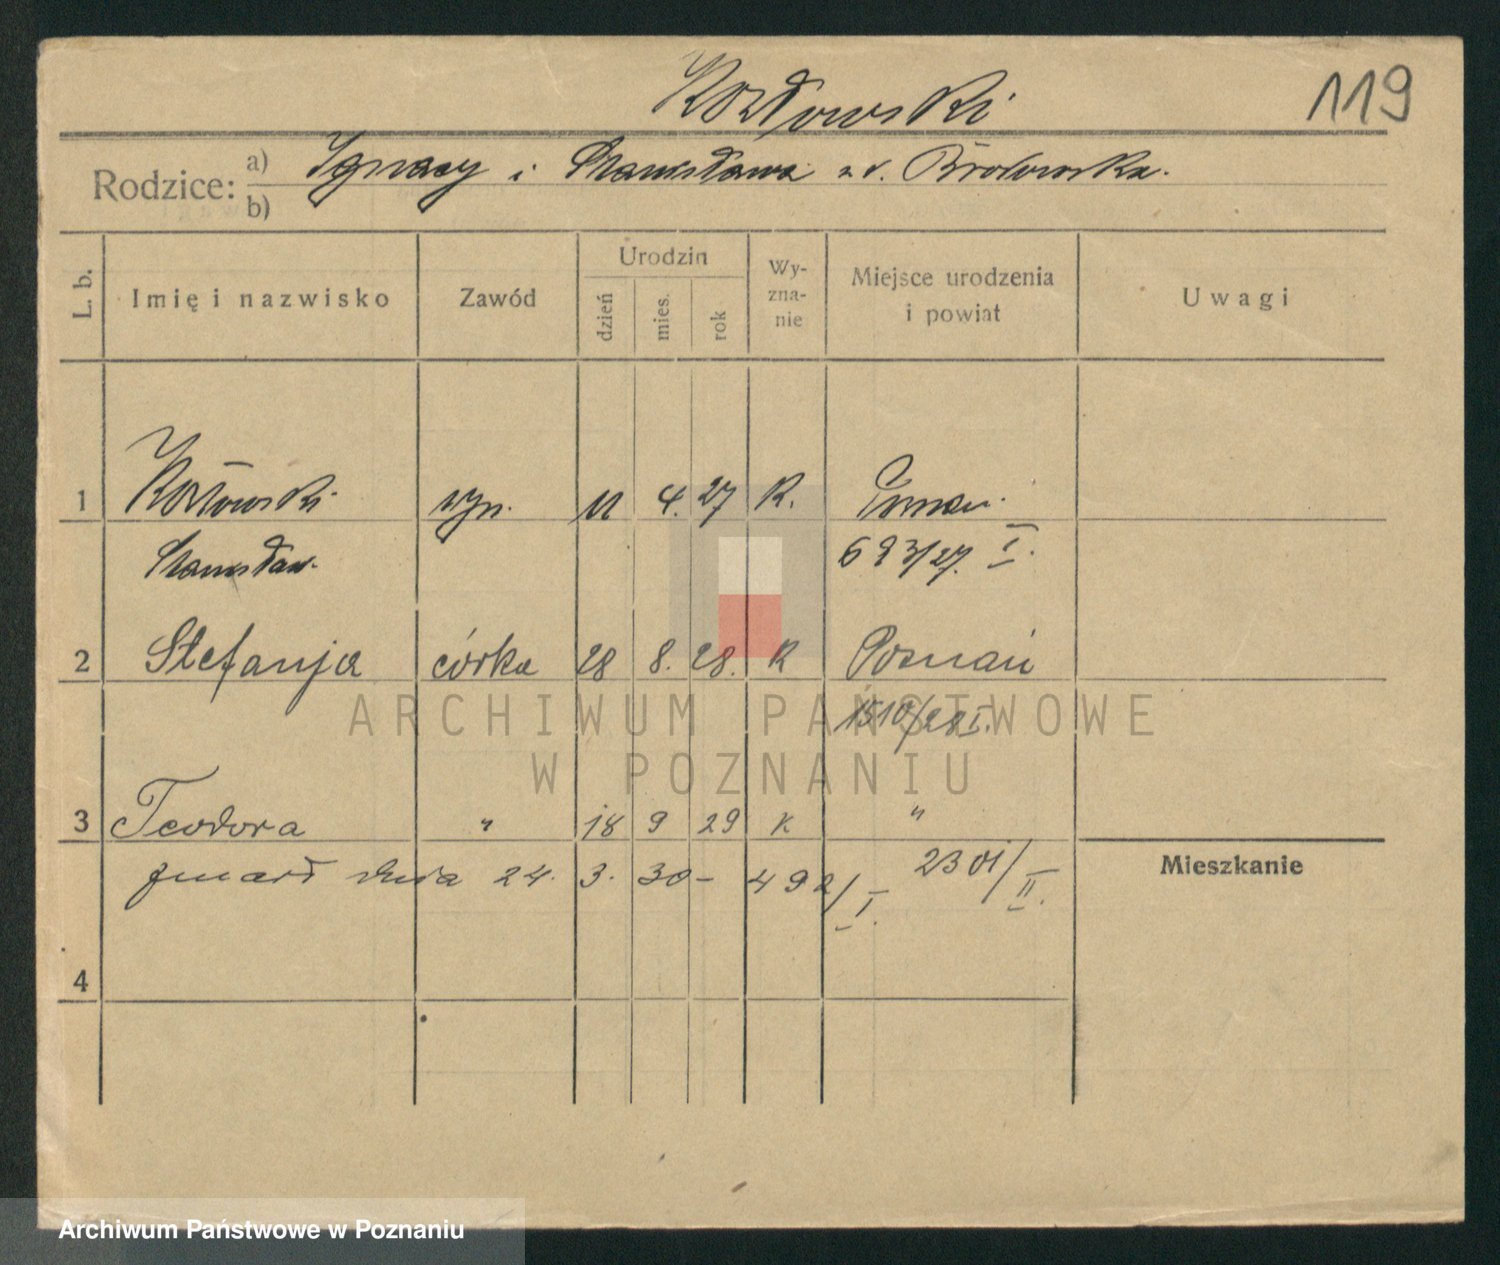 Kozłowski
119
Rodzice: a) Ignacy i Stanisława z d.
b)
L. b. Imię i nazwisko Zawód Urodzin dzień mies. rok Wy-zna-nie Miejsce urodzenia i powiat Uwagi
1 Kozłowski syn. 11 4. 27 R. Poznań.
Stanisław. 693/27. I.
2 Stefanja córka 28 8. 28. R Poznań
1510/28 I.
3 Teodora " 18 9 29 K "
2301/II.
zmarł dnia 24. 3. 30 – 492/I.
Mieszkanie
4
ARCHIWUM PAŃSTWOWE
W POZNANIU
Archiwum Państwowe w Poznaniu